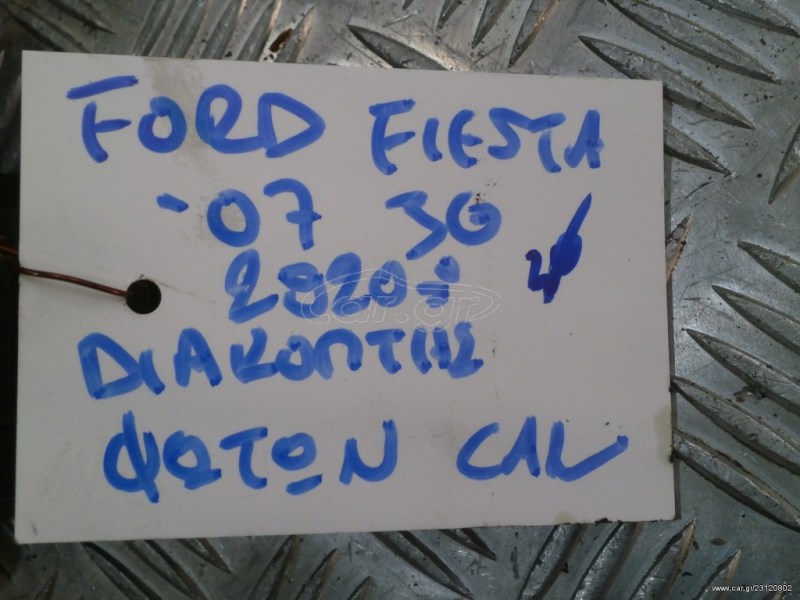 FORD FIESTA
-07 3θ
ΔΙΑΚΟΠΤΗΣ
ΦΩΤΩΝ CAL
car.gr
www.car.gr/23120802